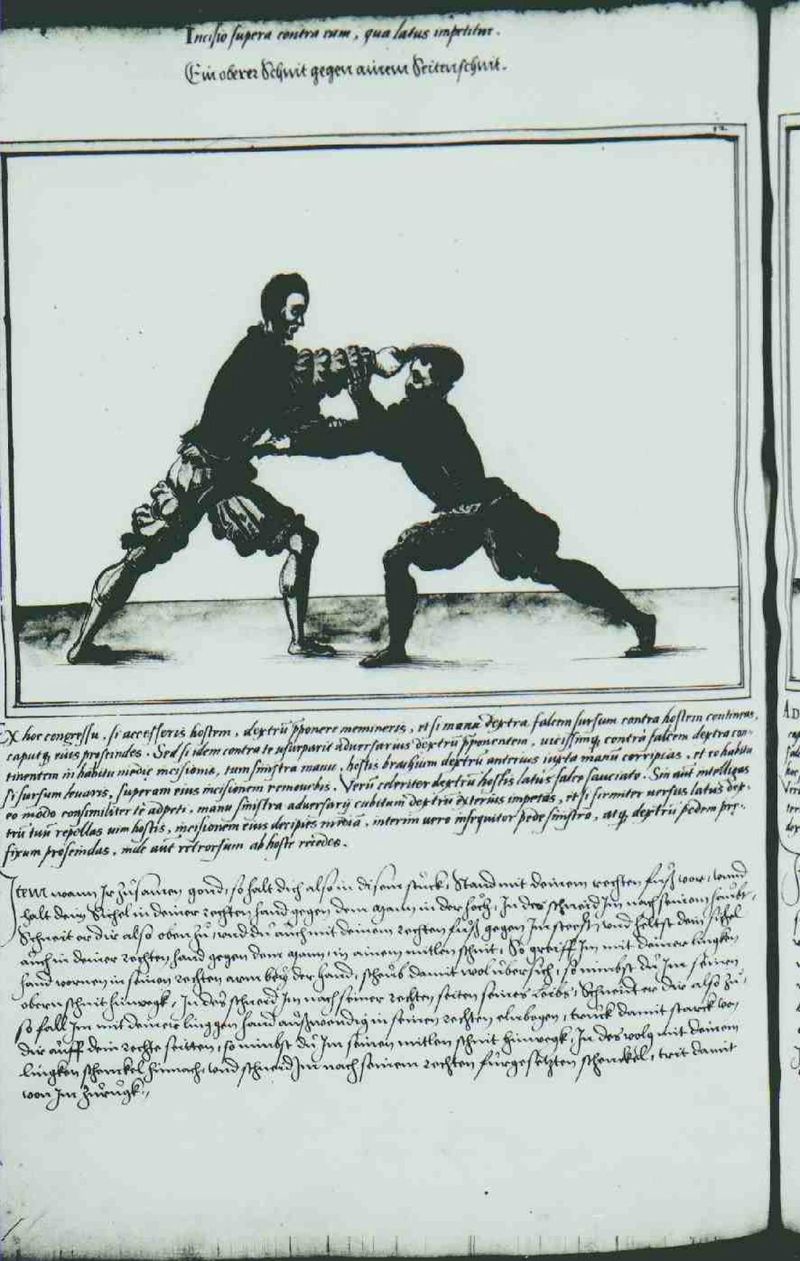 Incisio supera contra eam, qua latus impetitur.
Ein oberer Schnit gegen ainem Seitenschnit.
Ex hoc congressu, si accesseris hostem, dextrū p̄ponere memineris, et si manu dextra falcem sursum contra hostem contineas,
caput q̨ eius proscindes. Sed si idem contra te usurparit adversarius dextrū p̄ponentem, vicissimq̨ contra falcem dextra con-
tinentem in habitu mediæ incisionis, tum sinistra manu, hostis brachium dextrū anterius iuxta manū corripias, et eo habitu
si sursum levaris, superam eius incisionem removebis. Verū celeriter dextrū hostis latus falce sauciato. Sin aūt intelligas
eo modo consimiliter te adpeti, manu sinistra adversarij cubitum dextrū exterius impetas, et si firmiter versus latus dex-
trū tuū repellas vim hostis, incisionem eius decipies mediā, interim vero insequitor pede sinistro, atq̨ dextrū pedem pre-
fixum proscindas, inde aūt retrorsum ab hoste recedes.
Item wann Ir zůsamen gond, so halt dich also in disem stuck, Stand mit deinem rechten fůß vor, unnd
halt dein Sichel in deiner rechten hand gegen dem Mann in der höch, In des schneid Im nach seinem haubt,
Schneit er dir also oben zů, unnd du auch mit deinem rechten fůß gegen Im steest, und heltst dein Sichel
auch in deiner rechten hand gegen dem Mann, in ainem mitlen schnit, So greiff Im mit deiner lingken
hand vornen in seinen rechten arm bey der hand, scheub damit wol übersich, so nimbst du Im seinen
obern schnit hinwegk, In des schneid Im nach seiner rechten seiten seines leibs, Schneit er dir also zů,
so fall Im mit deiner linggen hand auswendig in seinen rechten elnbogen, truck damit starck von
dir auff dein rechte seitten, so nimbst du Im seinen mitlen schnit hinwegk, In des volg mit deinem
lingken schenckel hinnach, und schneid Im nach seinem rechten fürgesetzten schenckel, trit damit
von Im zůrugk.